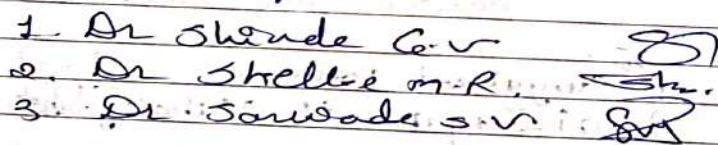 1. Dr Shinde G.V
2. Dr Shelke M.R. Sh.
3. Dr. Sarwade S.V